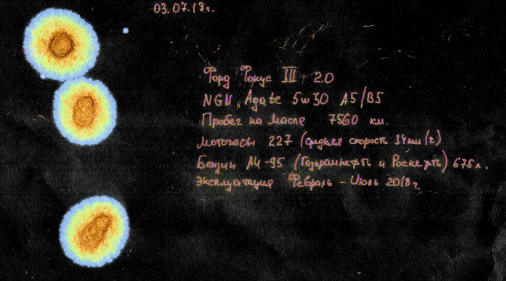 03.07.18г.
Форд Фокус III 2.0
NGN Agate 5w30 A5/B5
Пробег на масле 7560 км.
Моточасы 227 (средняя скорость 34км/ч)
Бензин АИ-95 (Газпромнефть и Роснефть) 675 л.
Эксплуатация Февраль - Июль 2018г.